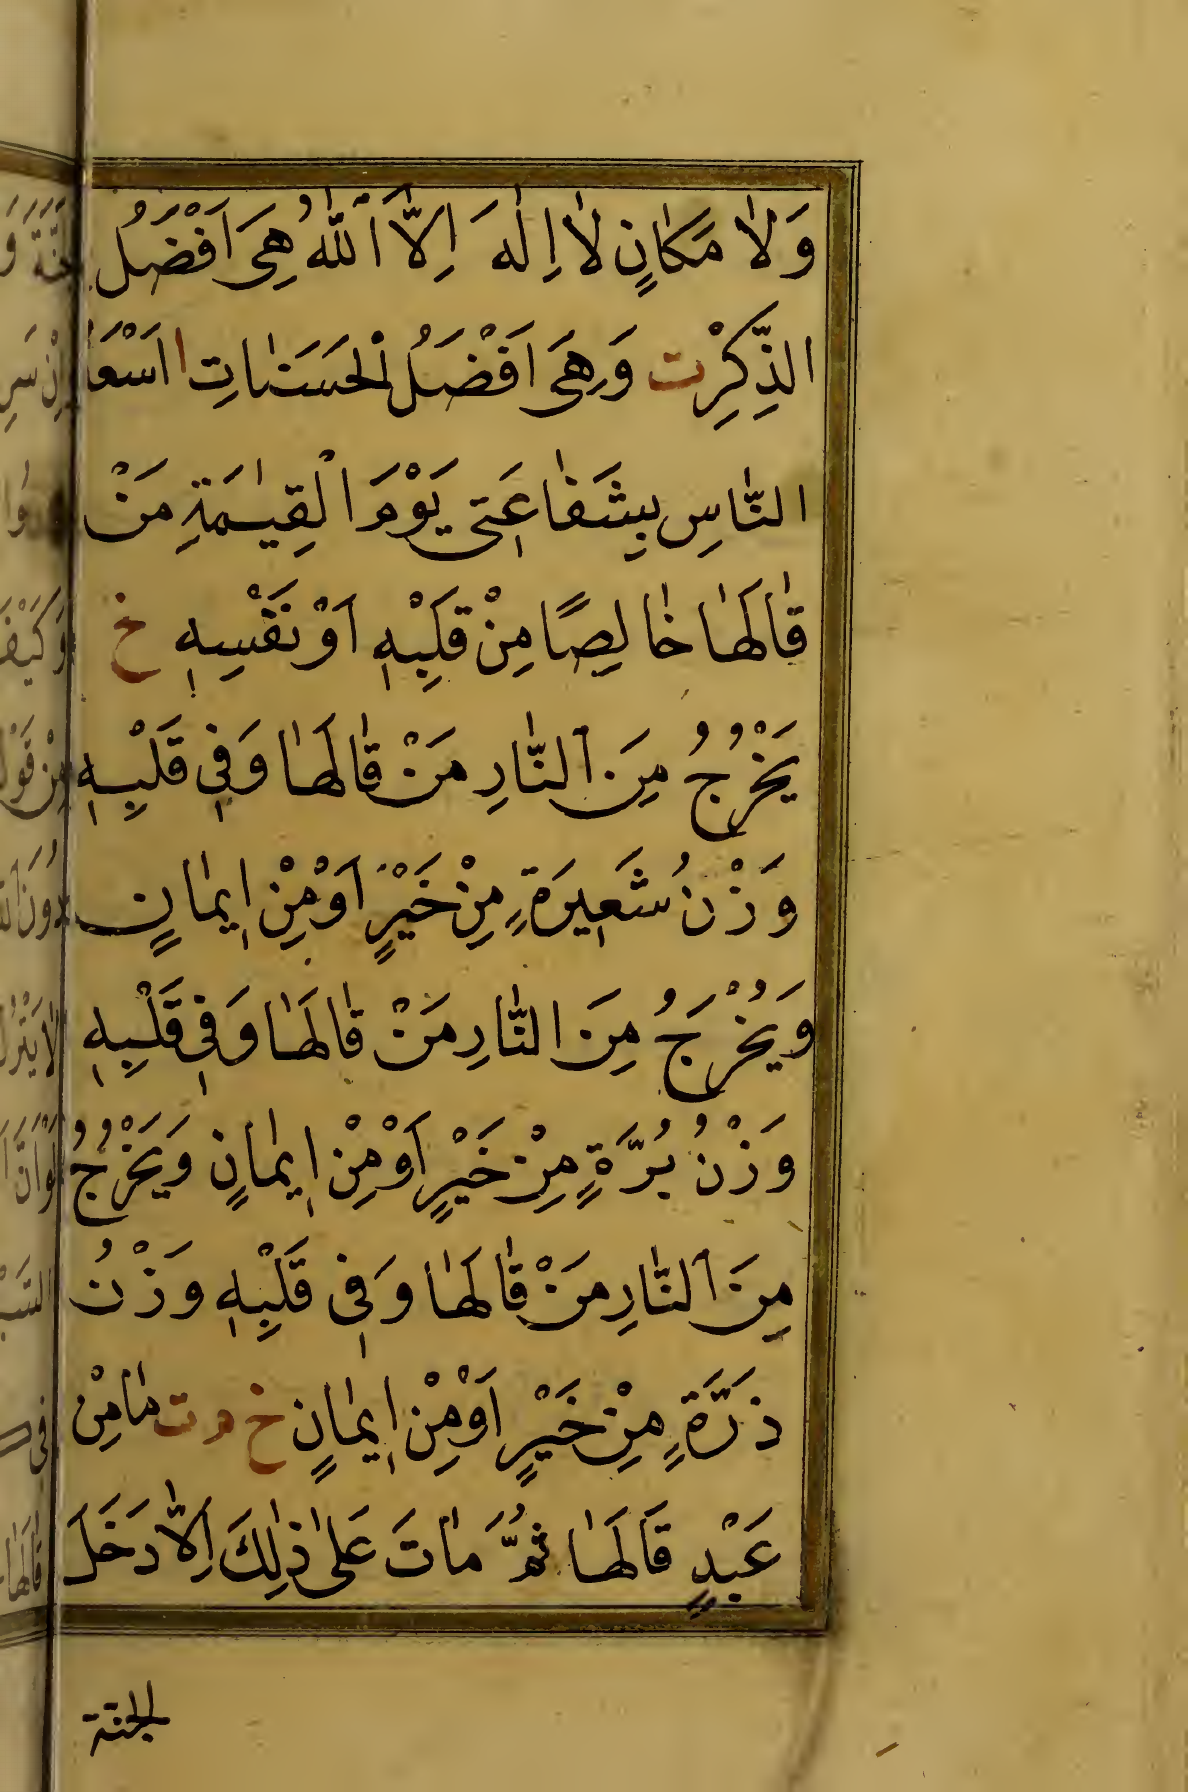 وَلَا مَكَانٍ لَا اِلٰهَ اِلَّا ٱللّٰهُ هِىَ اَفْضَلُ
الذِّكْرِ ت وَهِىَ اَفْضَلُ الْحَسَنَاتِ ا اَسْعَدُ
النَّاسِ بِشَفَاعَتِى يَوْمَ الْقِيٰمَةِ مَنْ
قَالَهَا خَالِصًا مِنْ قَلْبِهٖ اَوْ نَفْسِهٖ خ
يَخْرُجُ مِنَ ٱلنَّارِ مَنْ قَالَهَا وَفِى قَلْبِهٖ
وَزْنُ شَعِيرَةٍ مِنْ خَيْرٍ اَوْ مِنْ اِيمَانٍ
وَيَخْرُجُ مِنَ النَّارِ مَنْ قَالَهَا وَفِى قَلْبِهٖ
وَزْنُ بُرَّةٍ مِنْ خَيْرٍ اَوْ مِنْ اِيمَانٍ وَيَخْرُجُ
مِنَ ٱلنَّارِ مَنْ قَالَهَا وَفِى قَلْبِهٖ وَزْنُ
ذَرَّةٍ مِنْ خَيْرٍ اَوْ مِنْ اِيمَانٍ خ م ت مَا مِنْ
عَبْدٍ قَالَهَا ثُمَّ مَاتَ عَلٰى ذٰلِكَ اِلَّا دَخَلَ
الجنة